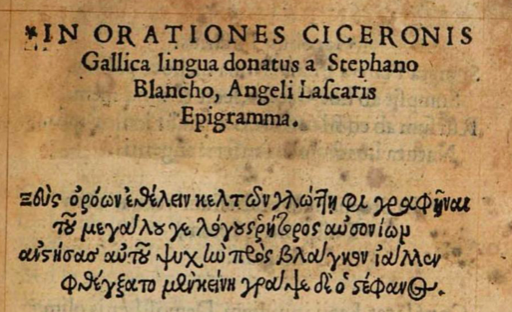 *IN ORATIONES CICERONIS
Gallica lingua donatus a Stephano
Blancho, Angeli Lascaris
Epigramma.
Ζεὺς ὁρόων ἐθέλειν κελτῶν γλώτῃ φι γραφῆναι
τοῦ μεγάλου γε λόγους ῥήτορος αὐσονίωμ
αὐτήσας αὐτοῦ ψυχὴν πρὸς βλάγκον ἴαλλεν
φθέγξατο μὲν κείνη γράψε δὲ ὁ στέφανος.